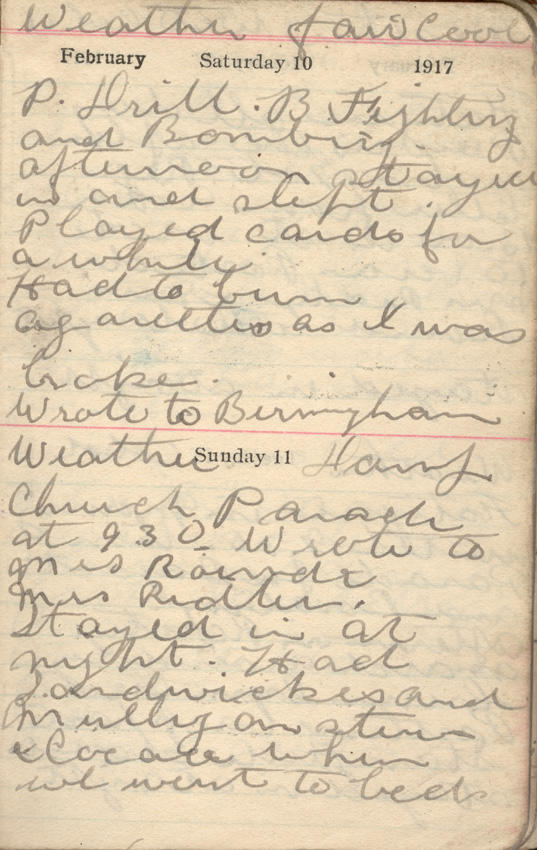 Weather fair Cool
February Saturday 10 1917
P. Drill. B. Fighting
and Bombing.
afternoon stayed
in and slept.
Played cards for
a while.
Had to bum
cigarettes as I was
broke.
Wrote to Birmingham
Weather Sunday 11 Damp
Church Parade
at 9 30. Wrote to
Mrs
Mrs Ridler.
Stayed in at
night. Had
Sandwickes and
Mulligan stew
& Cocoa when
we went to bed